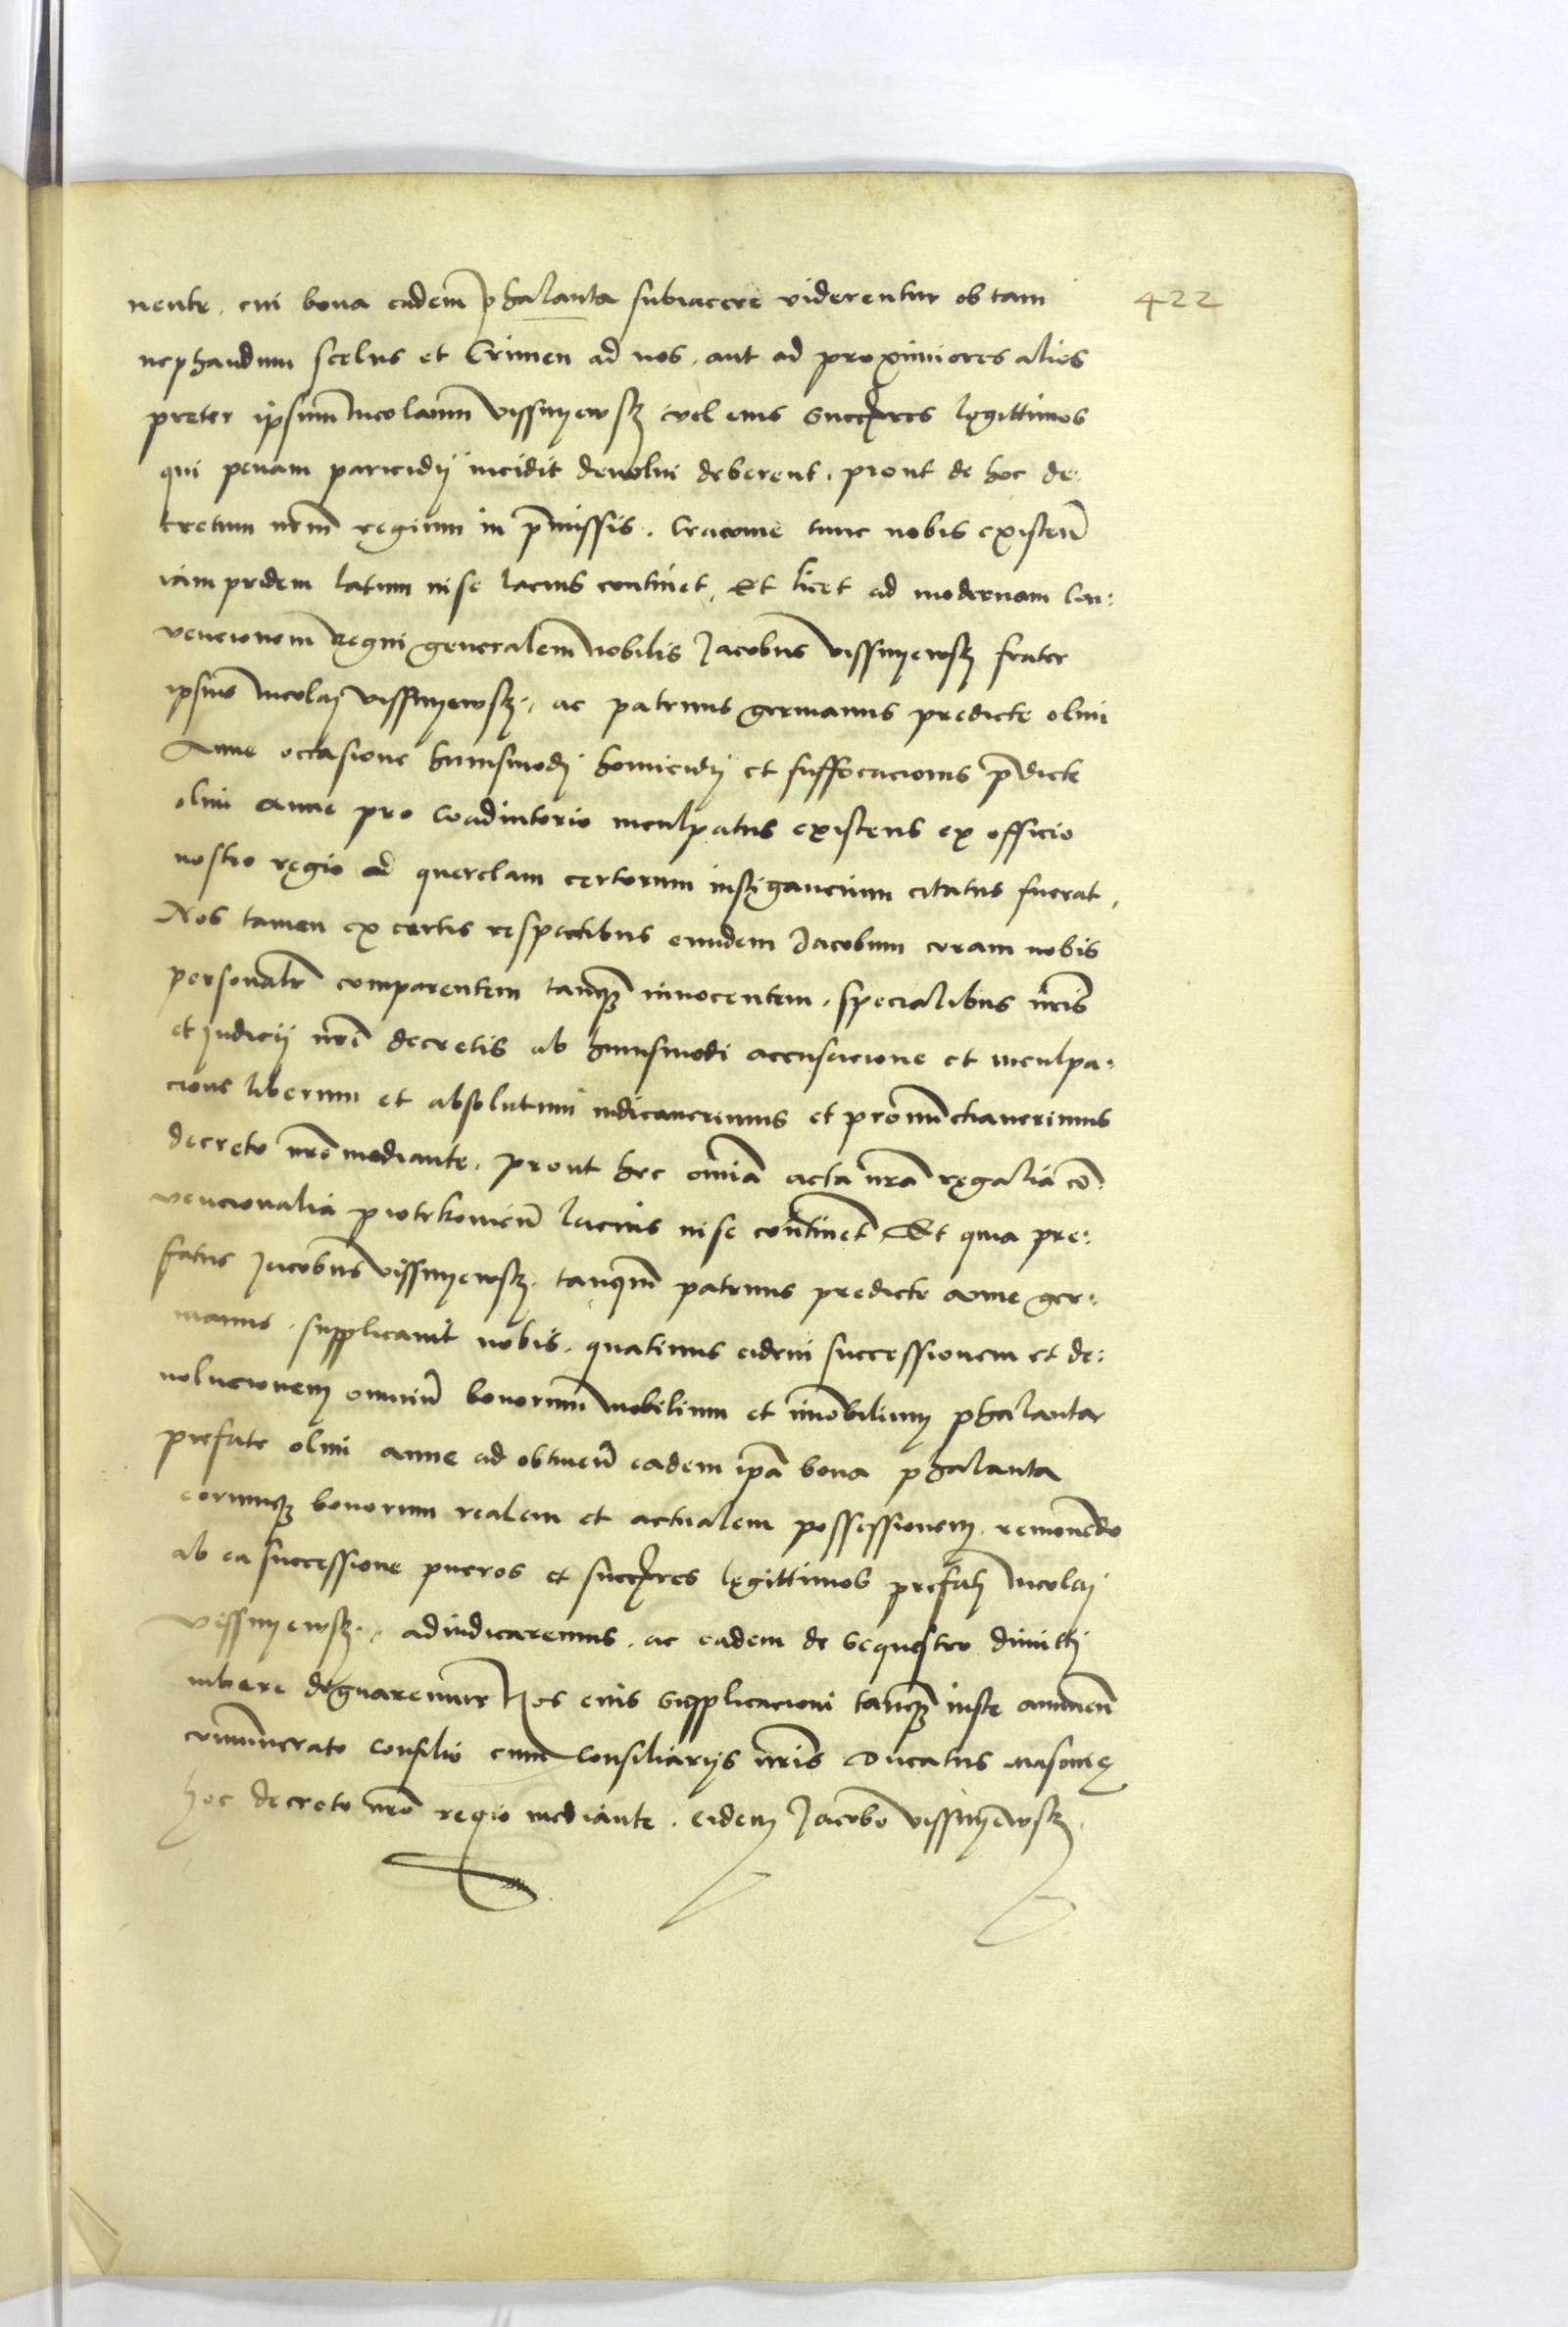 422
nente. cui bona eadem phalanta subiacere viderentur ob tam
nephandum scelus et Crimen ad nos. aut ad proximiores alios
preter ipsum Nicolaum Vissnyewsky vel eius succres legittimos
qui penam paricidy incidit devolui deberent. prout de hoc de:
cretum nrm̄ regium in p̄missis. Cracovie tunc nobis existen̄
iam pridem latum in se lacius continet. Et licet ad modernam Con:
vencionem Regni generalem nobilis Jacobus Vissnyewsky frater
ipsius Nicolaj Vissnyewsky. ac patruus germanus predicte olim
Anne occasione huiusmodj homicidij et suffocacionis p̄dicte
olim Anne pro coadiutorio inculpatus existens ex officio
nostro regio ad querelam certorum instigancium citatus fuerat.
Nos tamen ex certis respectibus eundem Jacobum coram nobis
personalr̄ comparentem tanq̄ innocentem. specialibus nr̄is
et Judicij nr̄i decretis ab huiusmodi accusacione et inculpa:
cione liberum et absolutum iudicaverimus et pronunctiaverimus
decreto nr̄o mediante. prout hec om̄ia acta nr̄a regalia cō:
vencionalia piotrkovien̄ lacius in se continet Et quia pre:
fatus Jacobus Vissnyewsky. tanquam patruus predicte Anne ger:
manus. supplicavit nobis. quatinus eidem successionem et de:
volucionem omniū bonorum mobilium et im̄obilium phalanta
prefate olim Anne ad obtinen̄ eadem ip̄a bona phalanta
eorumq̄ bonorum realem et actualem possessionem. removendo
ab ea successione pueros et succres legittimos prefatj Nicolaj
Vissnyewsky. adiudicaremus. ac eadem de sequestro dimittj
iubere dignaremur Nos eius supplicacioni tanq̄ iuste annuen̄
communicato consilio cum Consiliarijs nr̄is Ducatus Masovie
hoc decreto nr̄o regio mediante. eidem Jacobo Vissnyewsky.